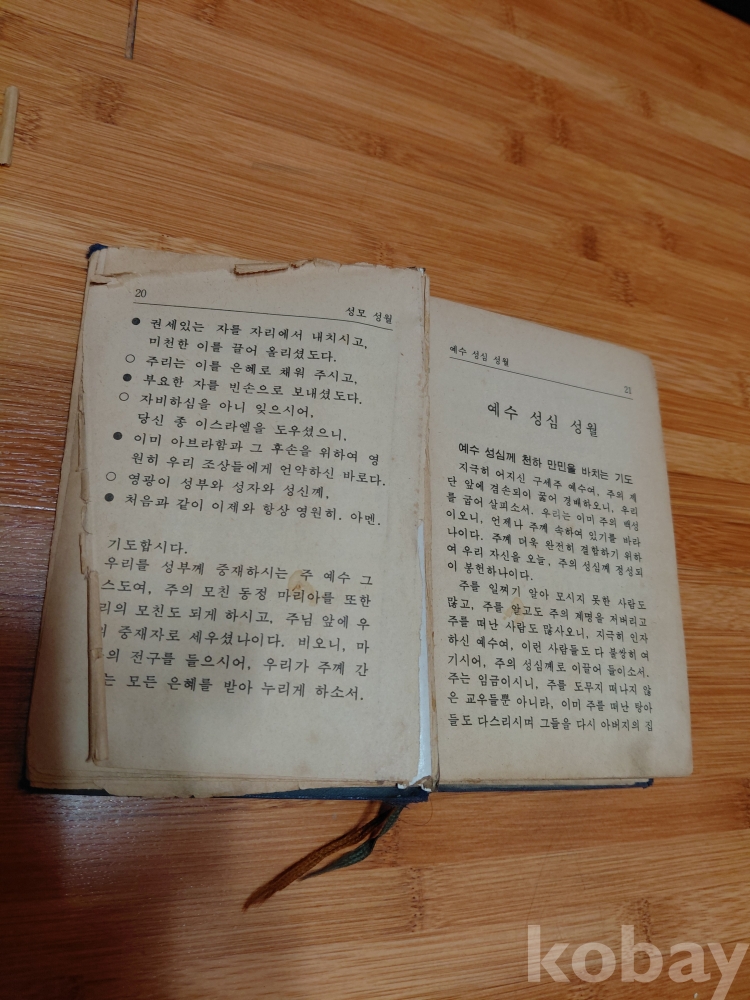 20
성모 성월
● 권세있는 자를 자리에서 내치시고,
미천한 이를 끌어 올리셨도다.
○ 주리는 이를 은혜로 채워 주시고,
● 부요한 자를 빈손으로 보내셨도다.
○ 자비하심을 아니 잊으시어,
당신 종 이스라엘을 도우셨으니.
● 이미 아브라함과 그 후손을 위하여 영
원히 우리 조상들에게 언약하신 바로다.
○ 영광이 성부와 성자와 성신께,
● 처음과 같이 이제와 항상 영원히. 아멘.
기도합시다.
우리를 성부께 중재하시는 주 예수 그
스도여, 주의 모친 동정 마리아를 또한
리의 모친도 되게 하시고, 주님 앞에 우
중재자로 세우셨나이다. 비오니, 마
의 전구를 들으시어, 우리가 주께 간
는 모든 은혜를 받아 누리게 하소서.
예수 성심 성월
21
예수 성심 성월
예수 성심께 천하 만민을 바치는 기도
지극히 어지신 구세주 예수여, 주의 제
단 앞에 겸손되이 꿇어 경배하오니, 우리
를 굽어 살피소서. 우리는 이미 주의 백성
이오니, 언제나 주께 속하여 있기를 바라
나이다. 주께 더욱 완전히 결합하기 위하
여 우리 자신을 오늘, 주의 성심께 정성되
이 봉헌하나이다.
주를 일찌기 알아 모시지 못한 사람도
많고, 주를 알고도 주의 계명을 저버리고
주를 떠난 사람도 많사오니, 지극히 인자
하신 예수여, 이런 사람들도 다 불쌍히 여
기시어, 주의 성심께로 이끌어 들이소서.
주는 임금이시니, 주를 도무지 떠나지 않
은 교우들뿐 아니라, 이미 주를 떠난 탕아
들도 다스리시며 그들을 다시 아버지의 집
kobay